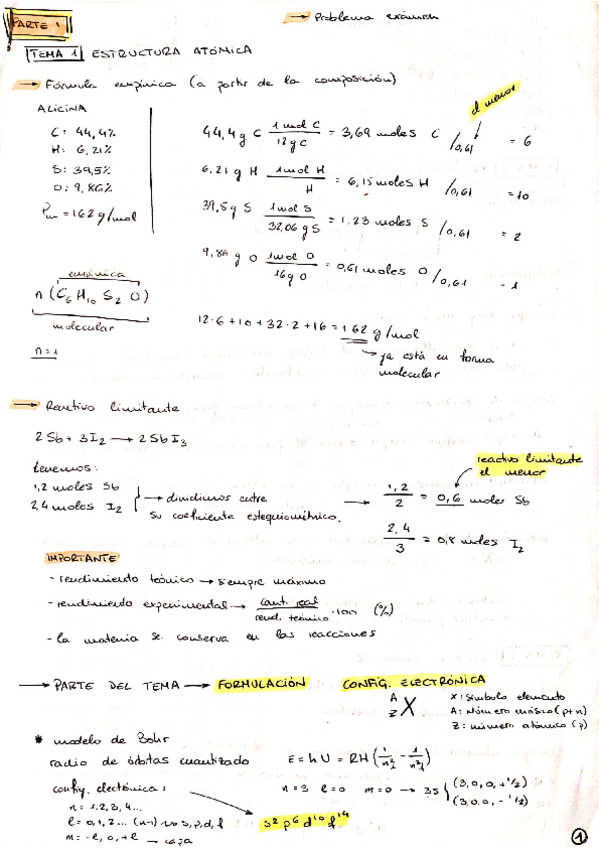 PARTE 1
→ Problema exámen
TEMA 1 ESTRUCTURA ATÓMICA
→ Fórmula empírica (a partir de la composición)
ALICINA
C: 44,4%
H: 6,21%
S: 39,5%
O: 9,86%
Pm = 162 g/mol
el menor
44,4 g C 1 mol C / 12 g C = 3,69 moles C /0,61 = 6
6,21 g H 1 mol H / H = 6,15 moles H /0,61 = 10
39,5 g S 1 mol S / 32,06 g S = 1,23 moles S /0,61 = 2
9,86 g O 1 mol O / 16 g O = 0,61 moles O /0,61 = 1
empírica
n (C6 H10 S2 O)
molecular
n=1
12·6 + 10 + 32·2 + 16 = 162 g/mol
→ ya está en forma
molecular
→ Reactivo limitante
2 Sb + 3 I2 → 2 Sb I3
tenemos:
1,2 moles Sb
2,4 moles I2
→ dividimos entre
su coeficiente estequiométrico.
→ 1,2 / 2 = 0,6 moles Sb
reactivo limitante
el menor
2,4 / 3 = 0,8 moles I2
IMPORTANTE
- rendimiento teórico → siempre máximo
- rendimiento experimental → cant. real / rend. teórico · 100 (%)
- la materia se conserva en las reacciones
→ PARTE DEL TEMA → FORMULACIÓN CONFIG. ELECTRÓNICA
A
Z X
X: Símbolo elemento
A: Número másico (p+n)
Z: número atómico (p)
* modelo de Bohr
radio de órbitas cuantizado
E = hν = RH (1/n²1 - 1/n²f)
config. electrónica:
n = 3 l = 0 m = 0 → 3s { (3,0,0,+1/2)
(3,0,0,-1/2)
n: 1,2,3,4...
l = 0,1,2... (n-1) → s,p,d,f
m = -l, 0, +l → caja
s² p⁶ d¹⁰ f¹⁴
1